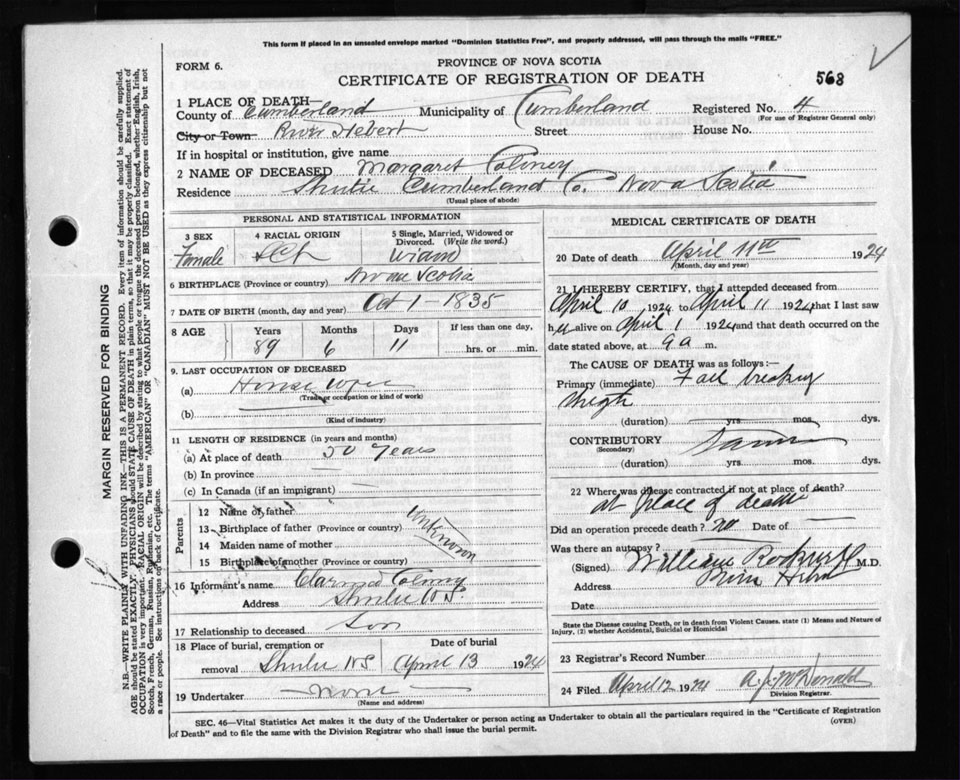 This form if placed in an unsealed envelope marked "Dominion Statistics Free", and properly addressed, will pass through the mails "FREE."
FORM 6.
PROVINCE OF NOVA SCOTIA
CERTIFICATE OF REGISTRATION OF DEATH
568
1 PLACE OF DEATH—
County of Cumberland Municipality of Cumberland Registered No. 4
(For use of Registrar General only)
City or Town River Hebert Street House No.
If in hospital or institution, give name
2 NAME OF DECEASED Margaret
Residence Shulie Cumberland Co. Nova Scotia
(Usual place of abode)
PERSONAL AND STATISTICAL INFORMATION
3 SEX 4 RACIAL ORIGIN 5 Single, Married, Widowed or Divorced. (Write the word.)
Female
6 BIRTHPLACE (Province or country) Nova Scotia
7 DATE OF BIRTH (month, day and year) Oct 1 - 1835
8 AGE Years Months Days If less than one day,
89 6 11 hrs. or min.
9. LAST OCCUPATION OF DECEASED
(a) House
(Trade or occupation or kind of work)
(b)
(Kind of industry)
11 LENGTH OF RESIDENCE (in years and months)
(a) At place of death 50 Years
(b) In province —
(c) In Canada (if an immigrant) —
Parents
12 Name of father
13 Birthplace of father (Province or country)
14 Maiden name of mother
15 Birthplace of mother (Province or country)
unknown
16 Informant's name
Address Shulie N S.
17 Relationship to deceased Son
18 Place of burial, cremation or removal Shulie NS Date of burial April 13 1924
19 Undertaker None
(Name and address)
MEDICAL CERTIFICATE OF DEATH
20 Date of death April 11th 1924
(Month, day and year)
21 I HEREBY CERTIFY, that I attended deceased from
April 10 1924 to April 11 1924 that I last saw
her alive on April 1 1924 and that death occurred on the
date stated above, at 9 a m.
The CAUSE OF DEATH was as follows:—
Primary (immediate) Fall breaking
thigh
(duration) yrs. mos. dys.
CONTRIBUTORY
(Secondary)
(duration) yrs. mos. dys.
22 Where was disease contracted if not at place of death?
at place of death
Did an operation precede death? no Date of —
Was there an autopsy?
(Signed) William M.D.
Address River
Date
State the Disease causing Death, or in death from Violent Causes, state (1) Means and Nature of Injury, (2) whether Accidental, Suicidal or Homicidal
23 Registrar's Record Number
24 Filed April 12 1924 McDonald
Division Registrar.
SEC. 46—Vital Statistics Act makes it the duty of the Undertaker or person acting as Undertaker to obtain all the particulars required in the "Certificate of Registration
of Death" and to file the same with the Division Registrar who shall issue the burial permit.
(OVER)
MARGIN RESERVED FOR BINDING
N.B.—WRITE PLAINLY WITH UNFADING INK—THIS IS A PERMANENT RECORD. Every item of information should be carefully supplied.
AGE should be stated EXACTLY. PHYSICIANS should STATE CAUSE OF DEATH in plain terms, so that it may be properly classified. Exact statement of
OCCUPATION is very important. RACIAL ORIGIN will be described by stating to what people or tongue the deceased person belonged, whether English, Irish,
Scotch, French, German, Russian, Ruthenian, etc. The terms "AMERICAN" OR "CANADIAN" MUST NOT BE USED as they express citizenship but not
a race or people. See instructions on back of Certificate.